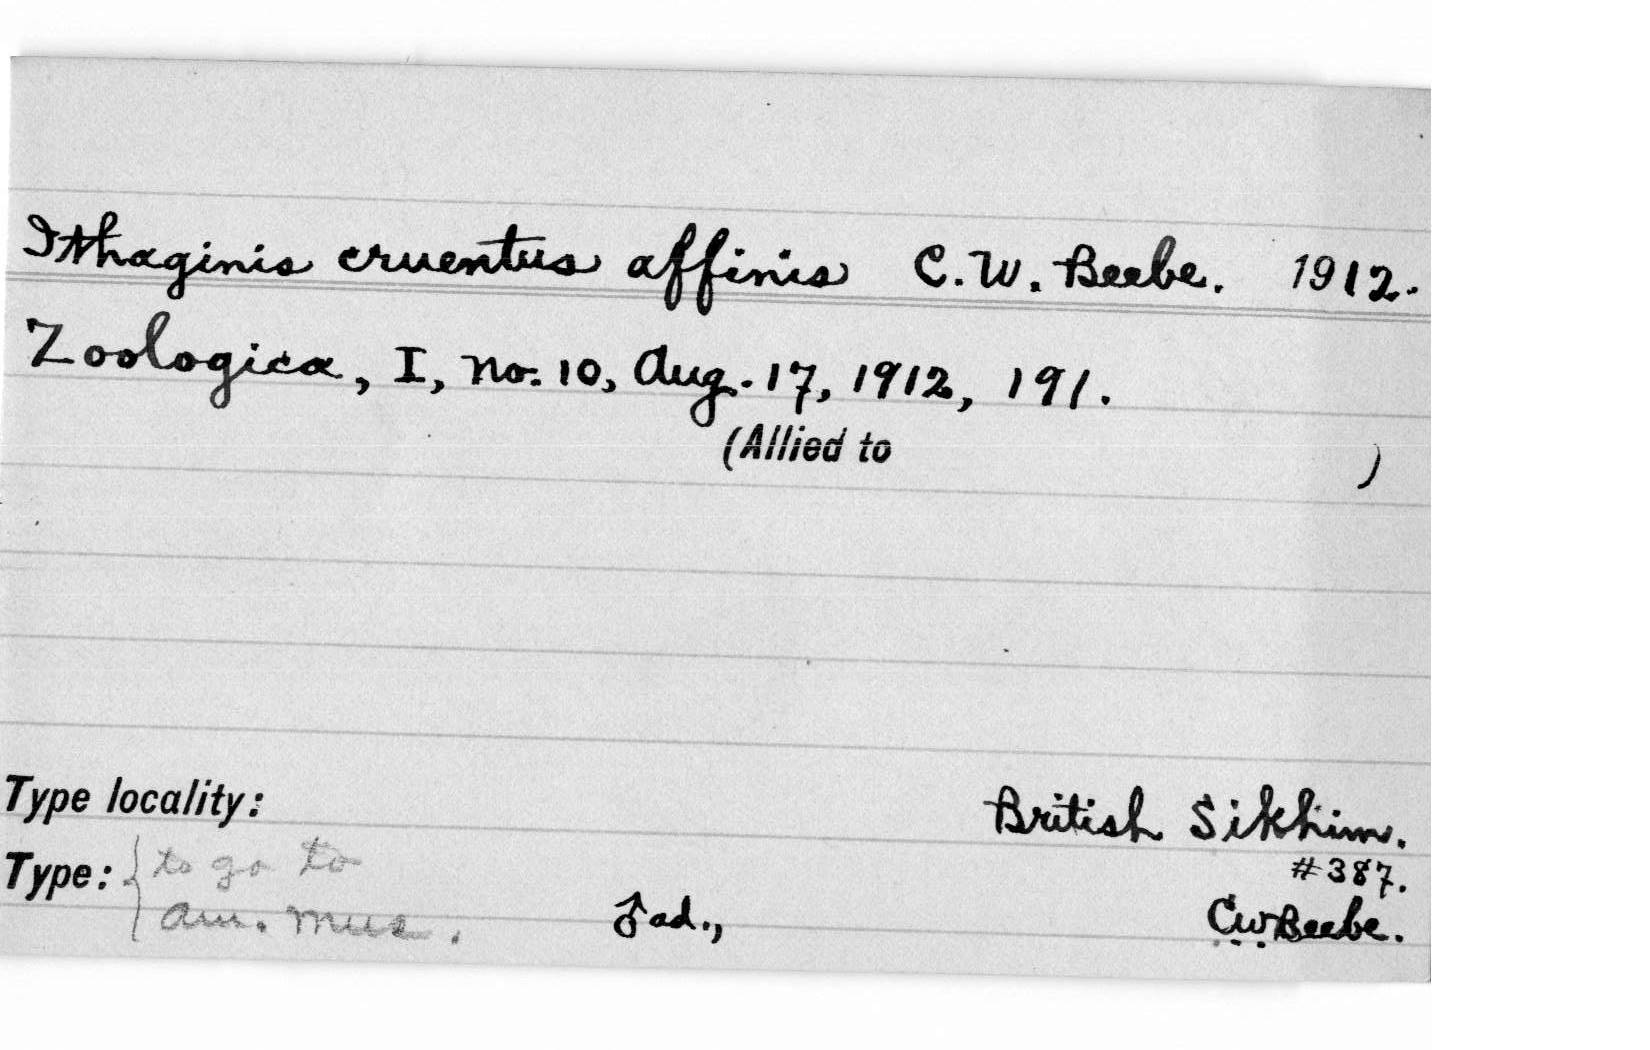 Ithaginis cruentus affinis C.W. Beebe. 1912.
Zoologica, I, no. 10, Aug. 17, 1912, 191.
(Allied to )
Type locality: British Sikhim.
#387.
Type: {to go to
Am. Mus. ♂ad., CWBeebe.